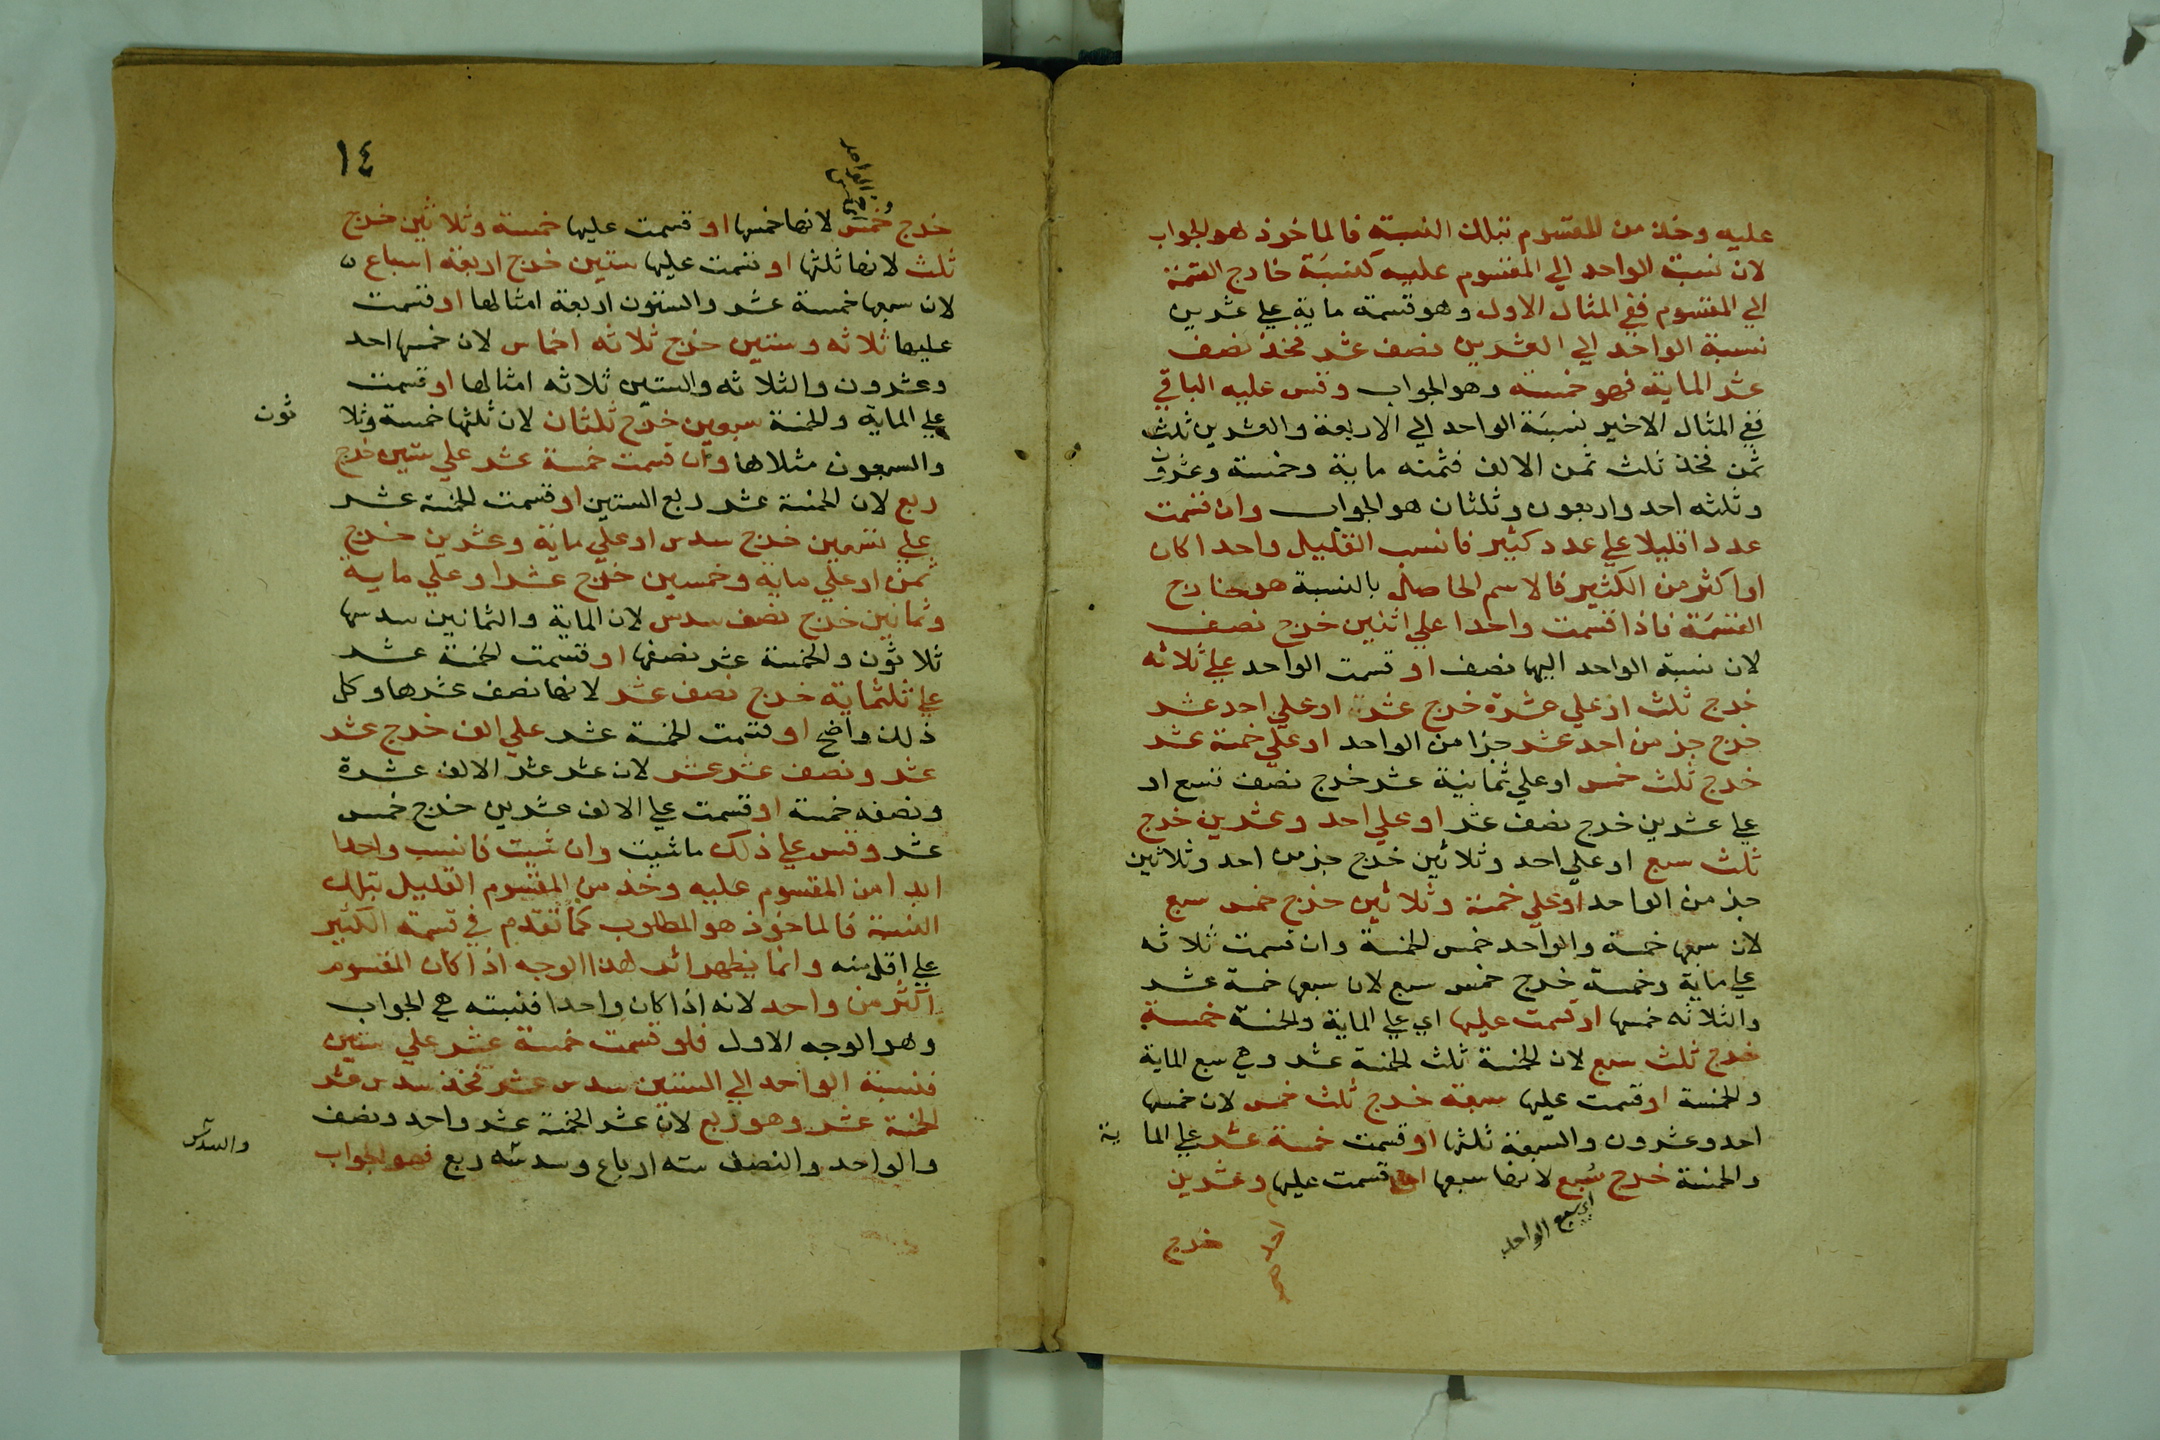 عليه وخذ من المقسوم بتلك النسبة فالماخوذ هو الجواب
لان نسبة الواحد الي المقسوم عليه كنسبة خارج القسمة
الي المقسوم ففي المثال الاول وهو قسمة ماية علي عشرين
نسبة الواحد الي العشرين نصف عشر فخذ نصف
عشر الماية فهو خمسة وهو الجواب وقس عليه الباقي
ففي المثال الاخير نسبة الواحد الي الاربعة والعشرين ثلث
ثمن فخذ ثلث ثمن الالف فثمنه ماية وخمسة وعشرون
وثلثه احد واربعون وثلثان هو الجواب وان قسمت
عددا قليلا علي عدد كثير فانسب القليل واحدا كان
او اكثر من الكثير فالاسم الحاصل بالنسبة هو خارج
القسمة فاذا قسمت واحدا علي اثنين خرج نصف
لان نسبة الواحد اليها نصف او قسمت الواحد علي ثلاثه
خرج ثلث او علي عشرة خرج عشر او علي احد عشر
خرج جز من احد عشر جزا من الواحد او علي خمسة عشر
خرج ثلث خمس او علي ثمانية عشر خرج نصف تسع او
علي عشرين خرج نصف عشر او علي احد وعشرين خرج
ثلث سبع او علي احد وثلاثين خرج جز من احد وثلاثين
جز من الواحد او علي خمسة وثلاثين خرج خمس سبع
لان سبعها خمسة والواحد خمس الخمسة وان قسمت ثلاثه
علي ماية وخمسة خرج خمس سبع لان سبعها خمسة عشر
والثلاثه خمسها او قسمت عليها اي علي الماية والخمسة خمسة
خرج ثلث سبع لان الخمسة ثلث الخمسة عشر وهي سبع الماية
والخمسة او قسمت عليها سبعة خرج ثلث خمس لان خمسها
احد وعشرون والسبعة ثلثها او قسمت خمسة عشر علي الما ية
والخمسة خرج سبع لانها سبعها او قسمت عليها وعشرين
اي سبع الواحد
احد
خرج
١٤
الواحد
خرج خمس لانها خمسها او قسمت عليها خمسة وثلاثين خرج
ثلث لانها ثلثها او قسمت عليها ستين خرج اربعة اسباع
لان سبعها خمسة عشر والستون اربعة امثالها او قسمت
عليها ثلاثه وستين خرج ثلاثه اخماس لان خمسها احد
وعشرون والثلاثه والستين ثلاثه امثالها او قسمت
علي الماية والخمسة سبعين خرج ثلثان لان ثلثها خمسة وثلا ثون
والسبعون مثلاها وان قسمت خمسة عشر علي ستين خرج
ربع لان الخمسة عشر ربع الستين او قسمت الخمسة عشر
علي تسعين خرج سدس او علي ماية وعشرين خرج
ثمن او علي ماية وخمسين خرج عشر او علي ماية
وثمانين خرج نصف سدس لان الماية والثمانين سدسها
ثلاثون والخمسة عشر نصفها او قسمت الخمسة عشر
علي ثلثماية خرج نصف عشر لانها نصف عشرها وكل
ذلك واضح او قسمت الخمسة عشر علي الف خرج عشر
عشر ونصف عشر عشر لان عشر عشر الالف عشرة
ونصفه خمسة او قسمت علي الالف عشرين خرج خمس
عشر وقس علي ذلك ما شيت وان شيت فانسب واحدا
ابدا من المقسوم عليه وخذ من المقسوم القليل بتلك
النسبة فالماخوذ هو المطلوب كما تقدم في قسمة الكثير
علي اقل منه وانما يظهر اثر هذا الوجه اذا كان المقسوم
اكثر من واحد لانه اذا كان واحدا فنسبته هي الجواب
وهو الوجه الاول فلو قسمت خمسة عشر علي ستين
فنسبة الواحد الي الستين سدس عشر فخذ سدس عشر
الخمسة عشر وهو ربع لان عشر الخمسة عشر واحد ونصف
والواحد والنصف سته ارباع وسدسه ربع فهو الجواب
والسدس